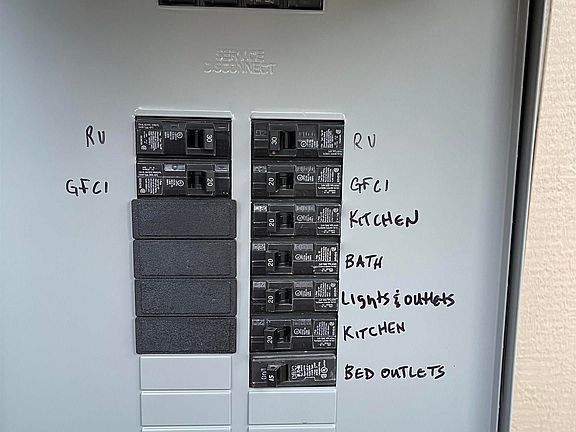 SERVICE
DISCONNECT
RV 30 30 RV
GFCI 20 20 GFCI
20 KITCHEN
20 BATH
20 Lights & outlets
20 KITCHEN
15 BED OUTLETS